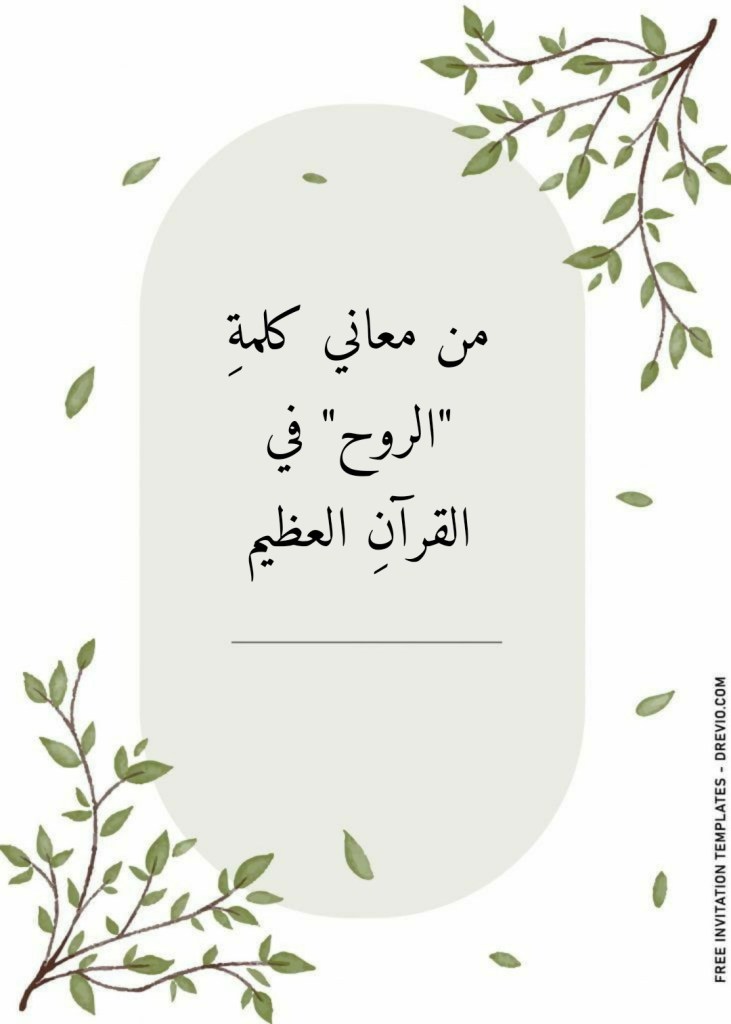 من معاني كلمةِ
"الروح" في
القرآنِ العظيم
FREE INVITATION TEMPLATES - DREVIO.COM